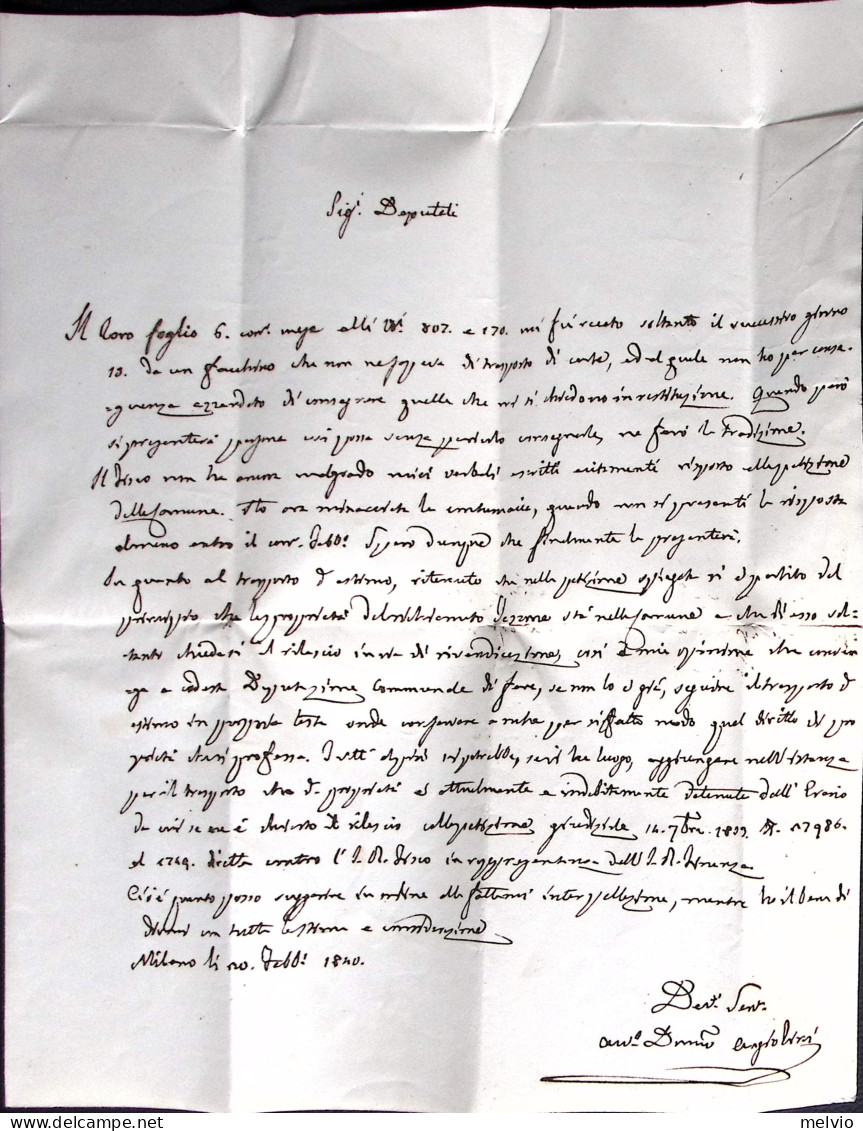 Sig.i Deputati
Il loro foglio 6. corr. mese alli N.i 807. e 170. mi fu recato soltanto il successivo giorno
13. da un facchino che non mi sapeva di trasporto di carte, ed al quale non ho per conse-
guenza azzardato di consegnare quelle che mi si chiedono in restituzione. Quando però
si presenterà persona cui possa senza pericolo consegnarle, ne farò la tradizione.
Il Fisco non ha ancora malgrado miei verbali eccitamenti risposto alla petizione
della Comune. Ho ora minacciata la contumacia, quando non si presenti la risposta
almeno entro il corr. Febb.o Spero dunque che finalmente la presenterà.
In quanto al trasporto d'estimo, ritenuto che nella petizione spiegata si è partito dal
principio che la proprietà del sta nella Comune e che di esso sol-
tanto chiedesi il rilascio in via di rivendicazione, così è mia opinione che conven-
ga a codesta Deputazione Comunale di fare, se non lo è già, seguire il trasporto d'
estimo in propria testa onde conservare anche per siffatto modo quel diritto di pro
prietà che si professa. Tutt'al più si potrebbe, se vi ha luogo, aggiungere nell'istanza
per il trasporto che la proprietà è attualmente e indebitamente detenuta dall'Erario
da cui se ne è chiesto il rilascio colla petizione giudiziale 14. 7bre 1839. N. 17986.
al 1749. diretta contro l'I. R. Fisco in rappresentanza dell'I. R. Finanza.
Ciò è quanto posso suggerire in ordine alla fattami interpellazione, mentre ho il bene di
dirmi con tutta la stima e considerazione
Milano li 20. Febb.o 1840.
Dev.o Serv.
avv.o Dom.co Angiolini
melvio